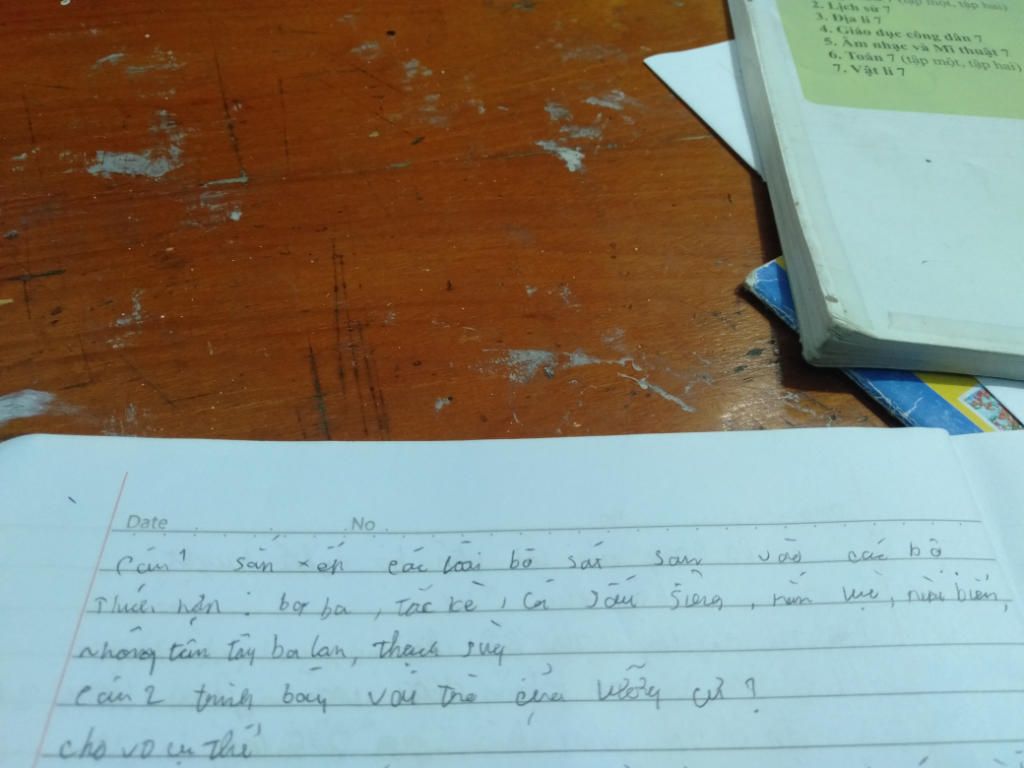 (tập một, tập hai)
2. Lịch sử 7
3. Địa lí 7
4. Giáo dục công dân 7
5. Âm nhạc và Mĩ thuật 7
6. Toán 7 (tập một, tập hai)
7. Vật lí 7
Date No
Câu 1 sắp xếp các loài bò sát sau vào các bộ
: ba ba, tắc kè, cá sấu, rùa biển,
nhông tân tây ba lan, thạch sùng
câu 2 trình bày vai trò của lưỡng cư?
cho vd cụ thể